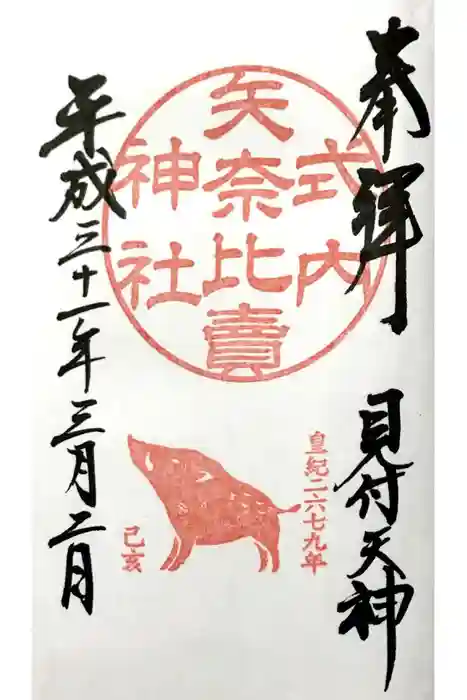 奉拝
見付天神
式内
矢奈比賣
神社
皇紀二六七九年
己亥
平成三十一年三月二日